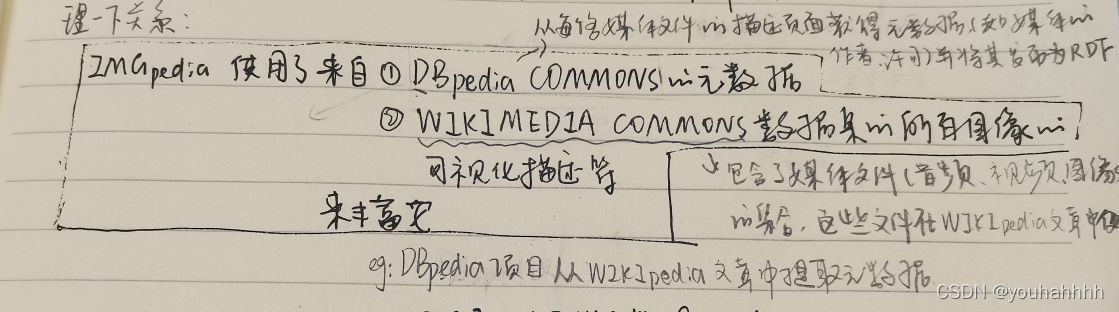 理一下关系:
从每个媒体文件的描述页面获得元数据(如媒体的
作者、许可)并将其发布为RDF
IMGpedia 使用了来自 ① DBpedia COMMONS的元数据
② WIKIMEDIA COMMONS数据集的所有图像的
可视化描述符
来丰富它
包含了媒体文件(音频、视频、图像
的集合, 这些文件在WIKIpedia文章中使
eg: DBpedia项目从WIKIpedia文章中提取元数据
CSDN @youhahhhh